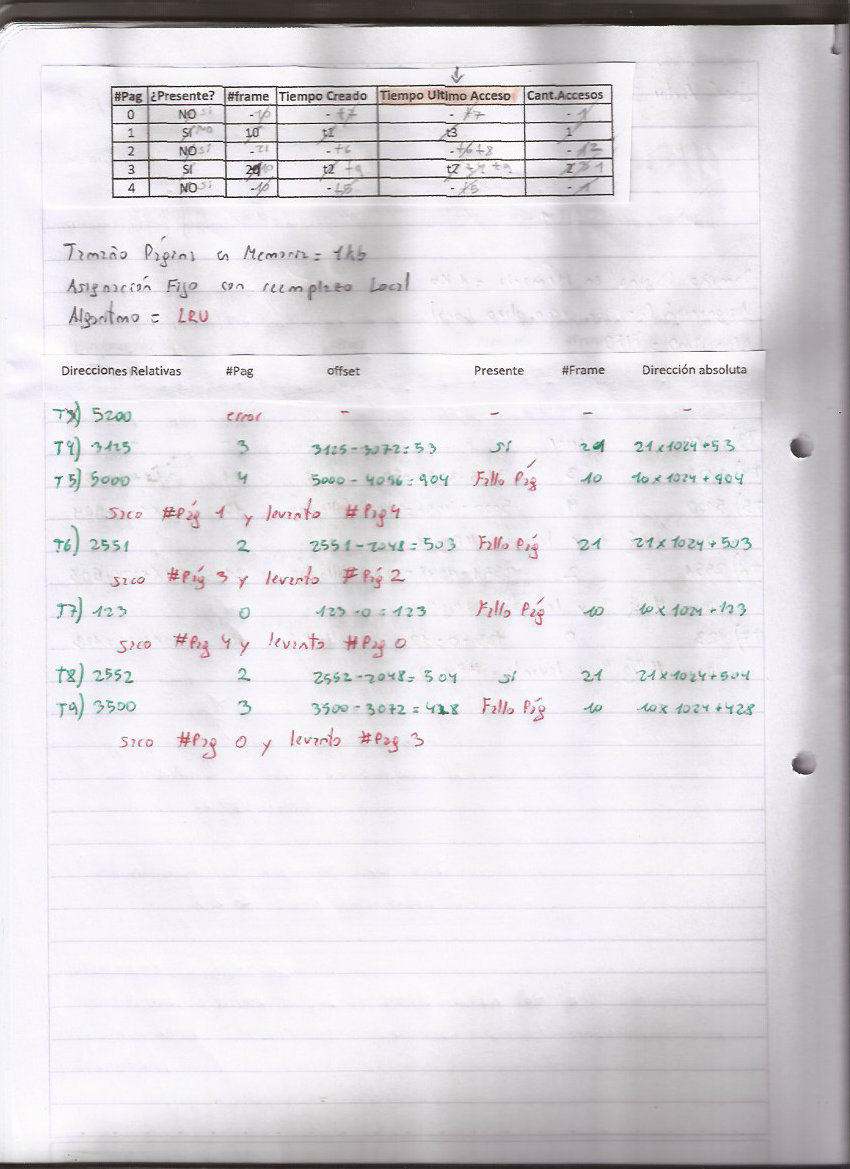 #Pag ¿Presente? #frame Tiempo Creado Tiempo Ultimo Acceso Cant.Accesos
0 NO si - 10 - t7 - t7 - 1
1 SI NO 10 t1 t3 1
2 NO si - 21 - t6 - t6 t8 - 1 2
3 SI t2 t9 t2 t9 1
4 NO si - 10 - t5 - t5 - 1
Tamaño Página en Memoria = 1kb
Asignación Fijo con reemplazo Local
Algoritmo = LRU
Direcciones Relativas #Pag offset Presente #Frame Dirección absoluta
5200 error - - - -
T4) 3125 3 3125-3072=53 sí 21 21x1024+53
T5) 5000 4 5000-4096=904 Fallo Pág 10 10x1024+904
saco #Pág 1 y levanto #Pag4
T6) 2551 2 2551-2048=503 Fallo Pág 21 21x1024+503
saco #Pág 3 y levanto #Pág 2
T7) 123 0 123-0=123 Fallo Pág 10 10x1024+123
saco #Pag 4 y levanto #Pag 0
T8) 2552 2 2552-2048=504 sí 21 21x1024+504
T9) 3500 3 3500-3072=428 Fallo Pág 10 10x1024+428
saco #Pag 0 y levanto #Pag 3